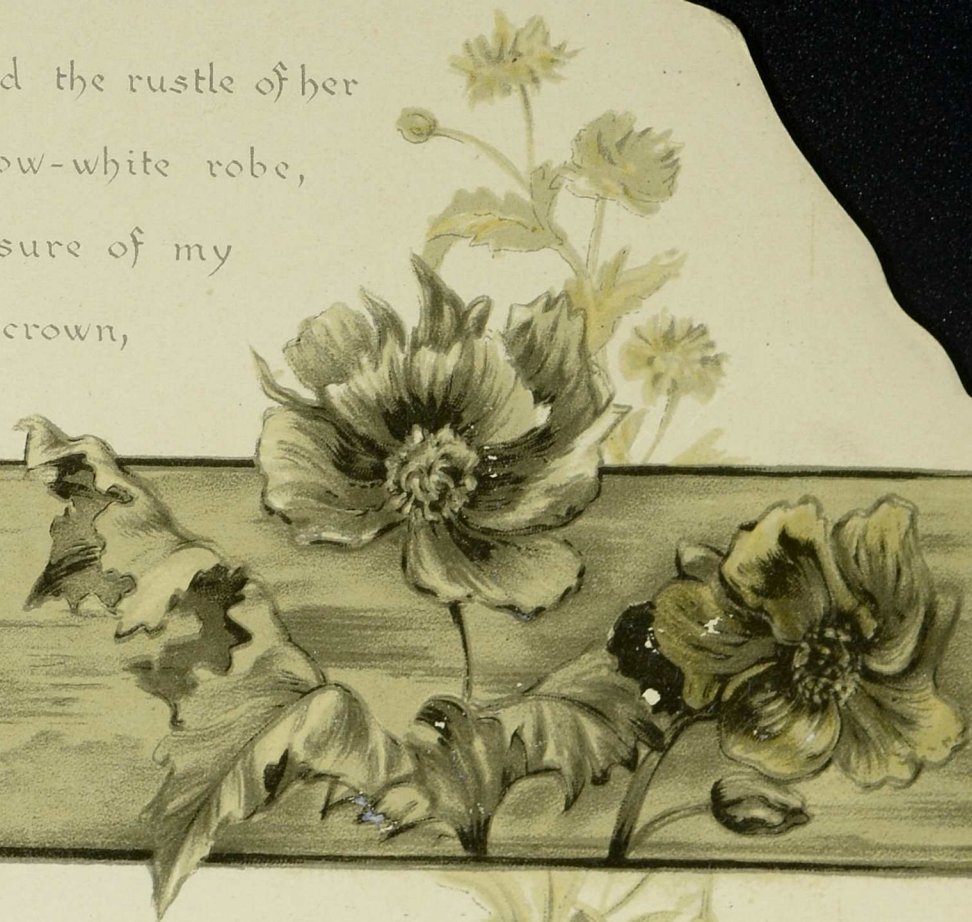 d the rustle of her
ow-white robe,
sure of my
crown,